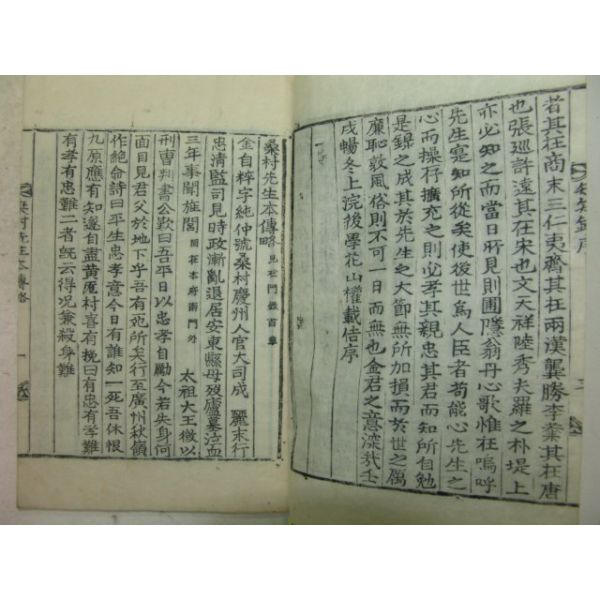 者其在商末三仁夷齊其在兩漢龔勝李業其在唐
也張巡許遠其在宋也文天祥陸秀夫羅之朴堤上
亦必知之而當日所見則圃隱翁丹心歌惟在嗚呼
先生寔知所從矣使後世爲人臣者苟能心先生之
心而操存擴充之則必孝其親忠其君而知所自勉
是錄之成其於先生之大節無所加損而於世之属
廉恥敦風俗則不可一日而無也金君之意深哉壬
戌暢冬上浣後學花山權載佶序
桑村先生本傳略
金自粹字純仲號桑村慶州人官大司成 麗末行
忠淸監司見時政漸亂退居安東縣母歿廬墓泣血
三年事聞旌閭 閭在本府南門外 太祖大王徵以
刑曺判書公歎曰吾平日以忠孝自勉今若失身何
面目見君父於地下乎吾有死所矣行至廣州秋嶺
作絶命詩曰平生忠孝意今日有誰知一死吾休恨
九原應有知遂自盡黃厖村喜有挽曰有忠有孝難
有孝有忠難二者旣云得况兼殺身難
桑村先生本傳略
一